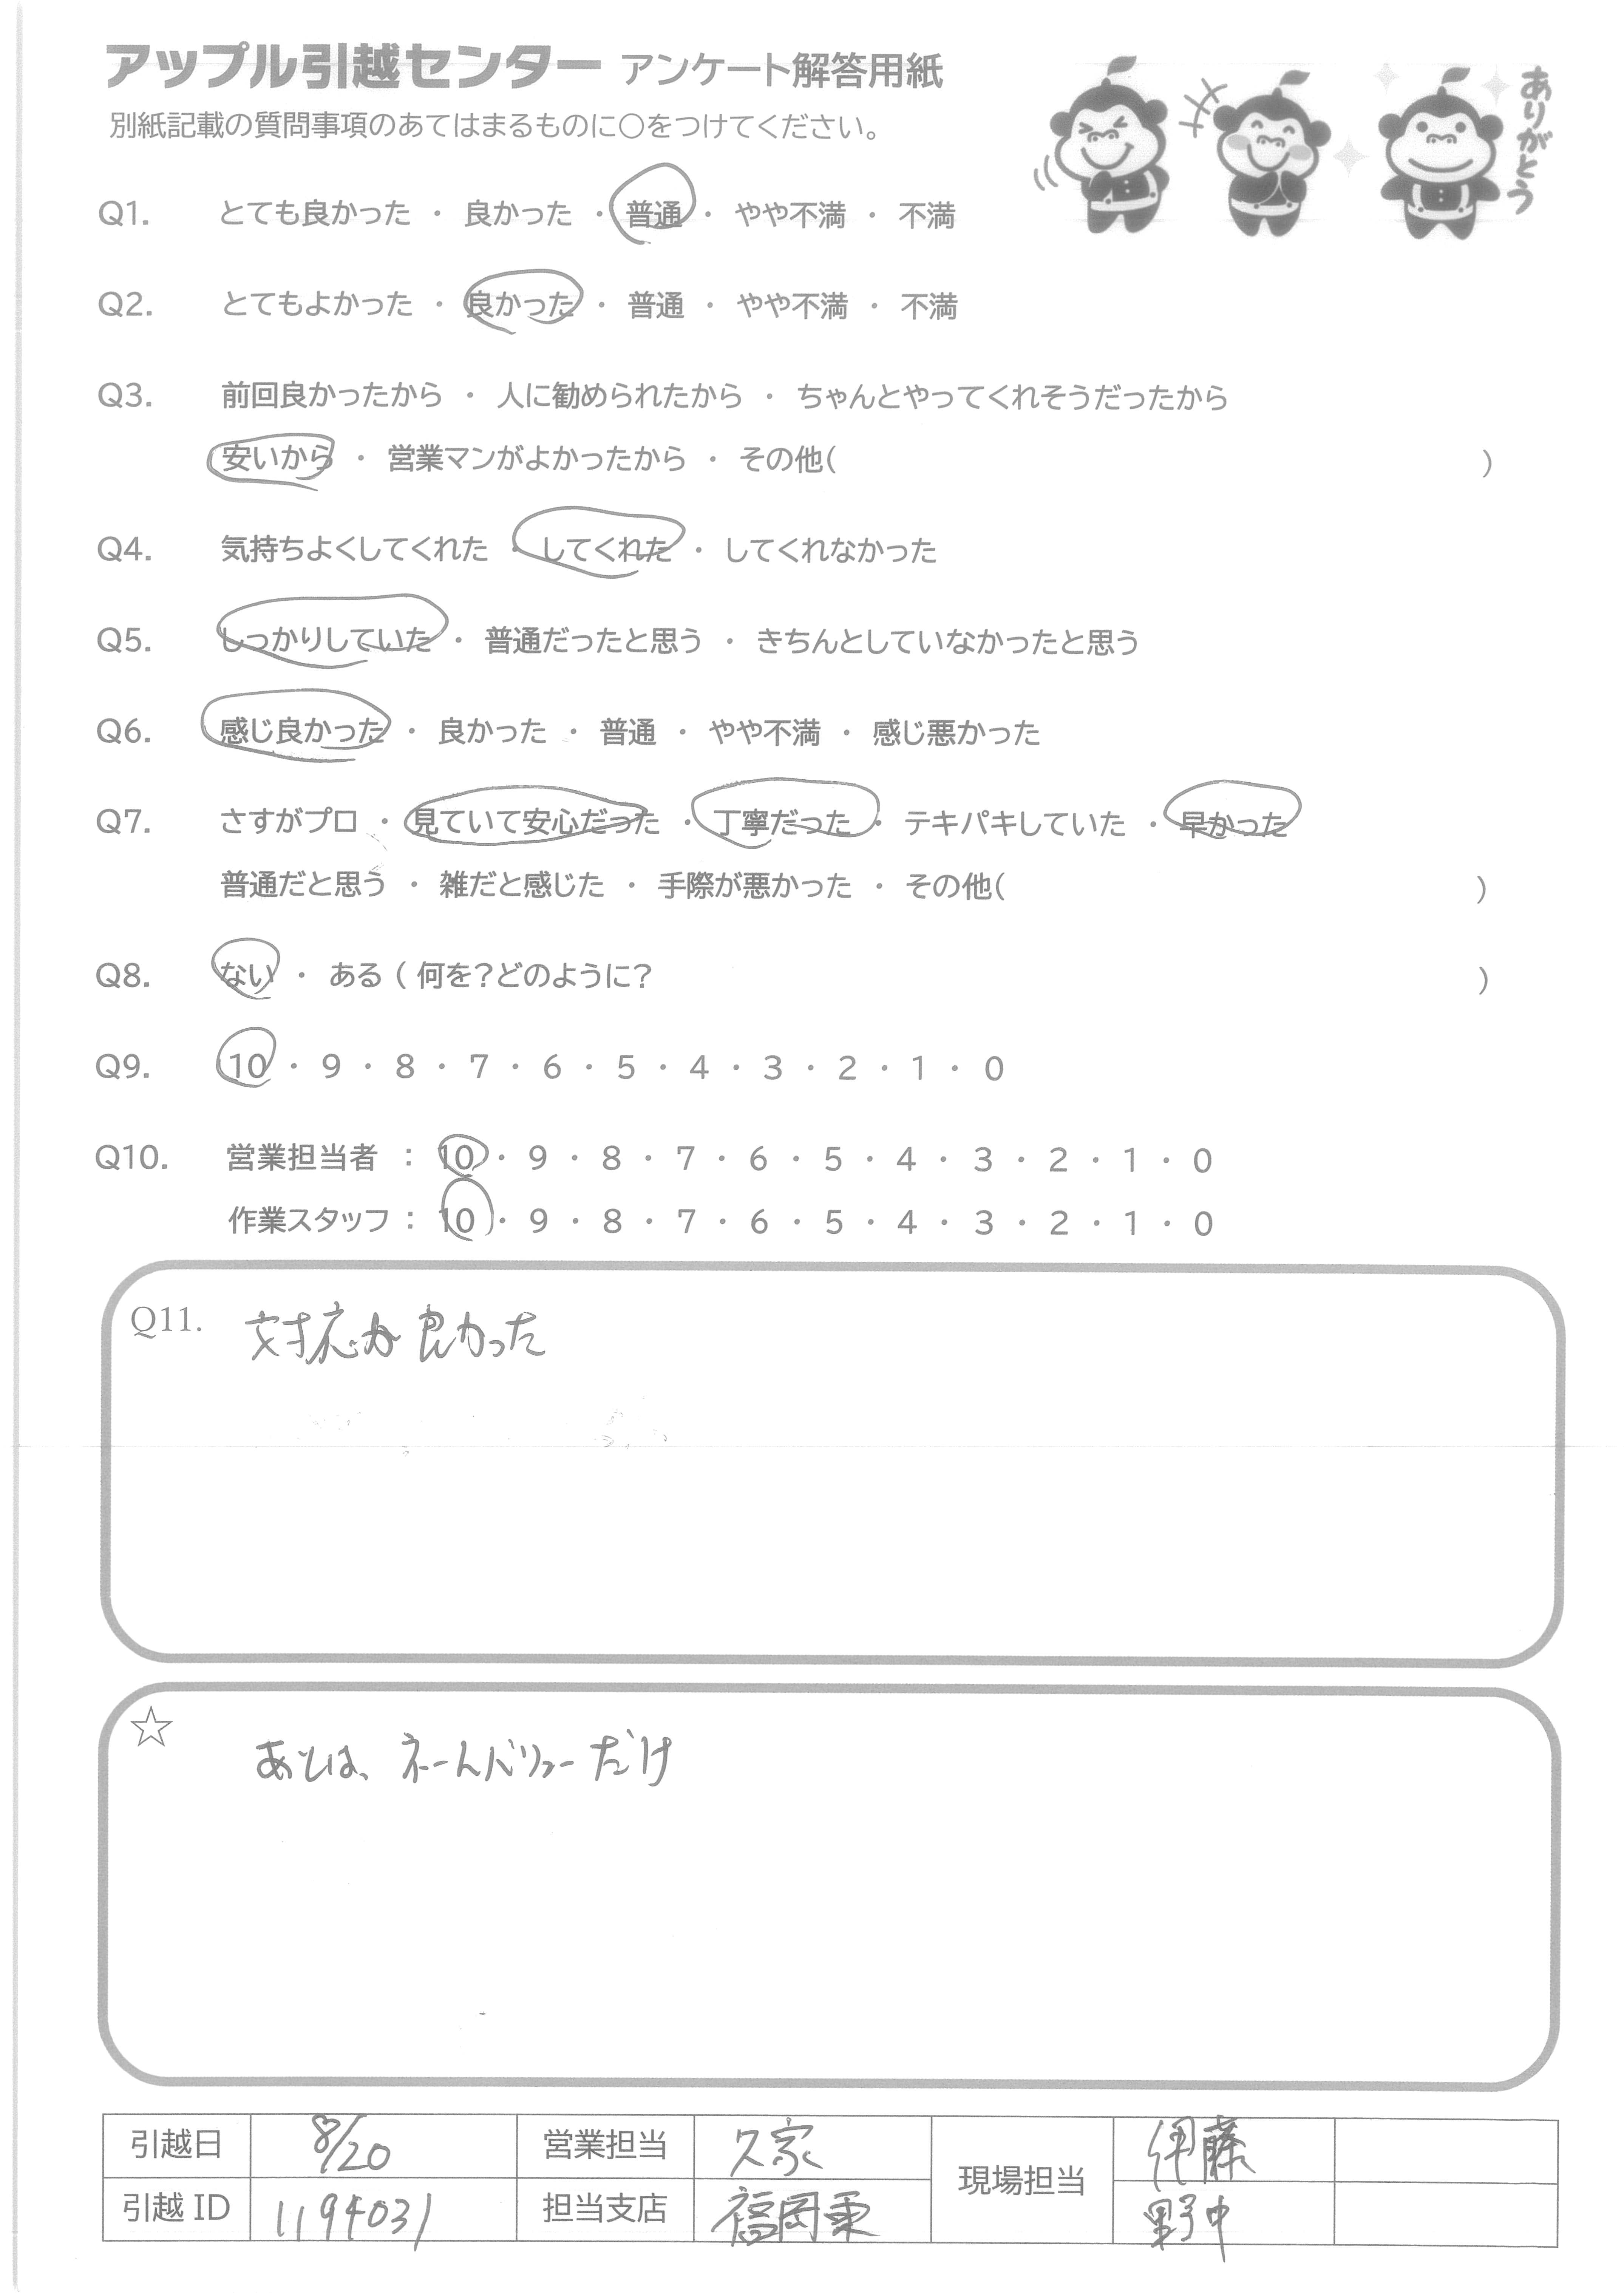 アップル引越センター アンケート解答用紙
ありがとう
別紙記載の質問事項のあてはまるものに○をつけてください。
Q1. とても良かった ・ 良かった ・ 普通 ・ やや不満 ・ 不満
Q2. とてもよかった ・ 良かった ・ 普通 ・ やや不満 ・ 不満
Q3. 前回良かったから ・ 人に勧められたから ・ ちゃんとやってくれそうだったから
安いから ・ 営業マンがよかったから ・ その他( )
Q4. 気持ちよくしてくれた ・ してくれた ・ してくれなかった
Q5. しっかりしていた ・ 普通だったと思う ・ きちんとしていなかったと思う
Q6. 感じ良かった ・ 良かった ・ 普通 ・ やや不満 ・ 感じ悪かった
Q7. さすがプロ ・ 見ていて安心だった ・ 丁寧だった ・ テキパキしていた ・ 早かった
普通だと思う ・ 雑だと感じた ・ 手際が悪かった ・ その他( )
Q8. ない ・ ある ( 何を?どのように? )
Q9. 10 ・ 9 ・ 8 ・ 7 ・ 6 ・ 5 ・ 4 ・ 3 ・ 2 ・ 1 ・ 0
Q10. 営業担当者 : 10 ・ 9 ・ 8 ・ 7 ・ 6 ・ 5 ・ 4 ・ 3 ・ 2 ・ 1 ・ 0
作業スタッフ : 10 ・ 9 ・ 8 ・ 7 ・ 6 ・ 5 ・ 4 ・ 3 ・ 2 ・ 1 ・ 0
Q11. 対応が良かった
☆ あとは、ネームバリューだけ
引越日 8/20 営業担当 久家 現場担当 伊藤
引越 ID 1194031 担当支店 福岡東 野中